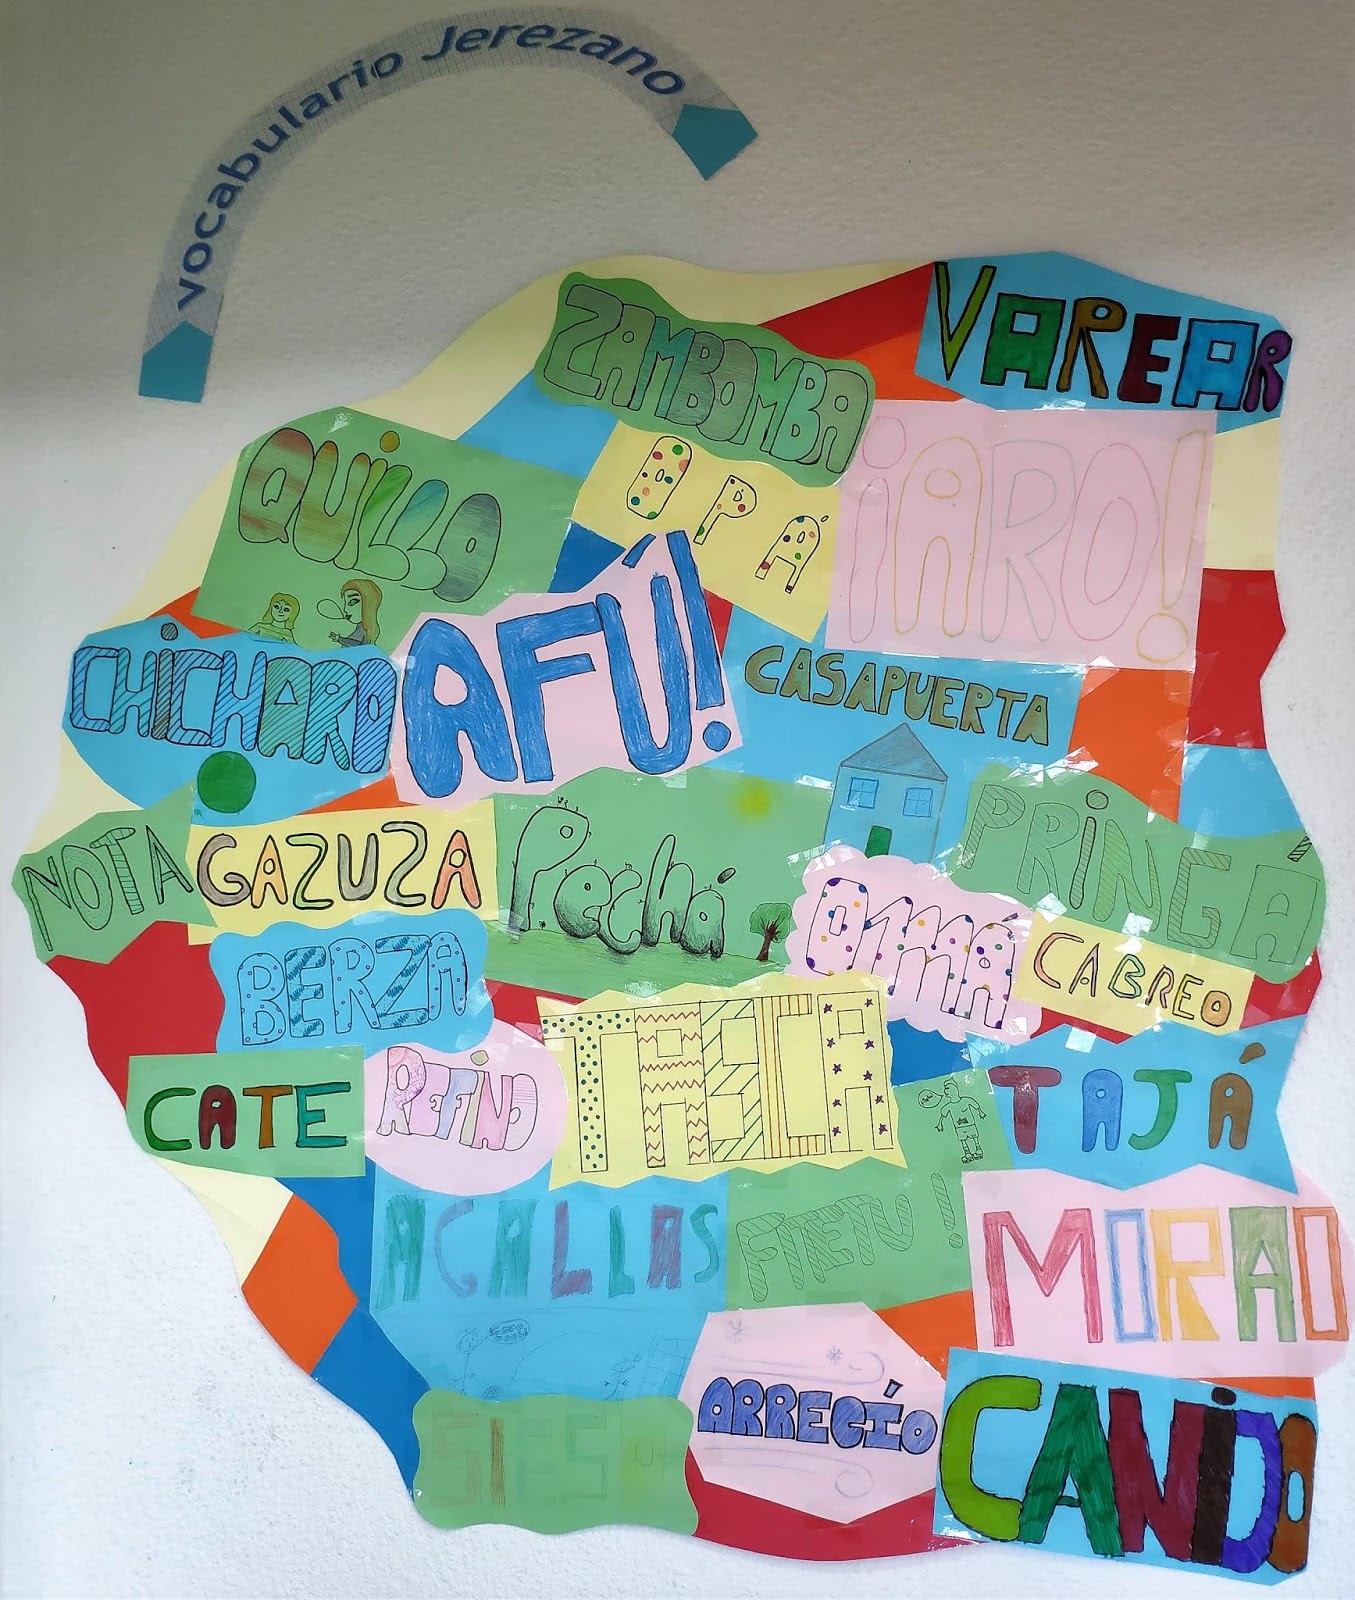 vocabulario Jerezano
VAREAR
ZAMBOMBA
QUILLO
OPÁ
¡ARO!
AFÚ!
CHICHARO
CASAPUERTA
PRINGÁ
NOTA
GAZUZA
Pechá
OMÁ
CABREO
BERZA
CATE
REFINO
TASCA
TAJÁ
ACALLAS
FITETU!
MORAO
ARRECÍO
CANIJO
SIESO